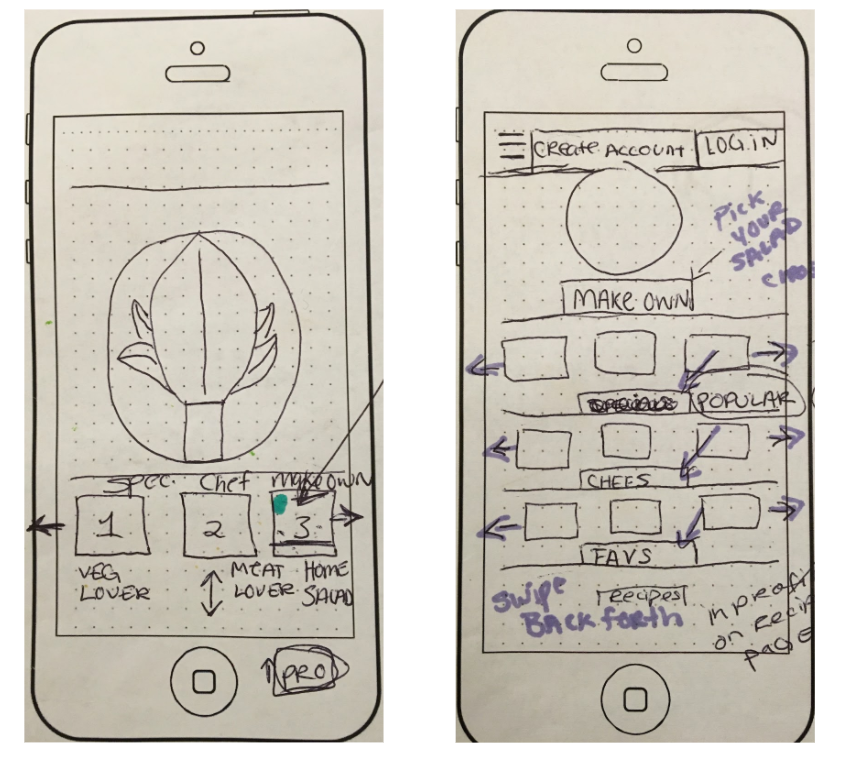 Spec. Chef Make own
1 2 3
VEG
LOVER
MEAT
LOVER
HOME
SALAD
PRO
Create Account
LOG.iN
Pick
YOUR
SALAD
MAKE OWN
POPULAR
CHEFS
FAVS
recipes
Swipe
BACK forth
in
on
page